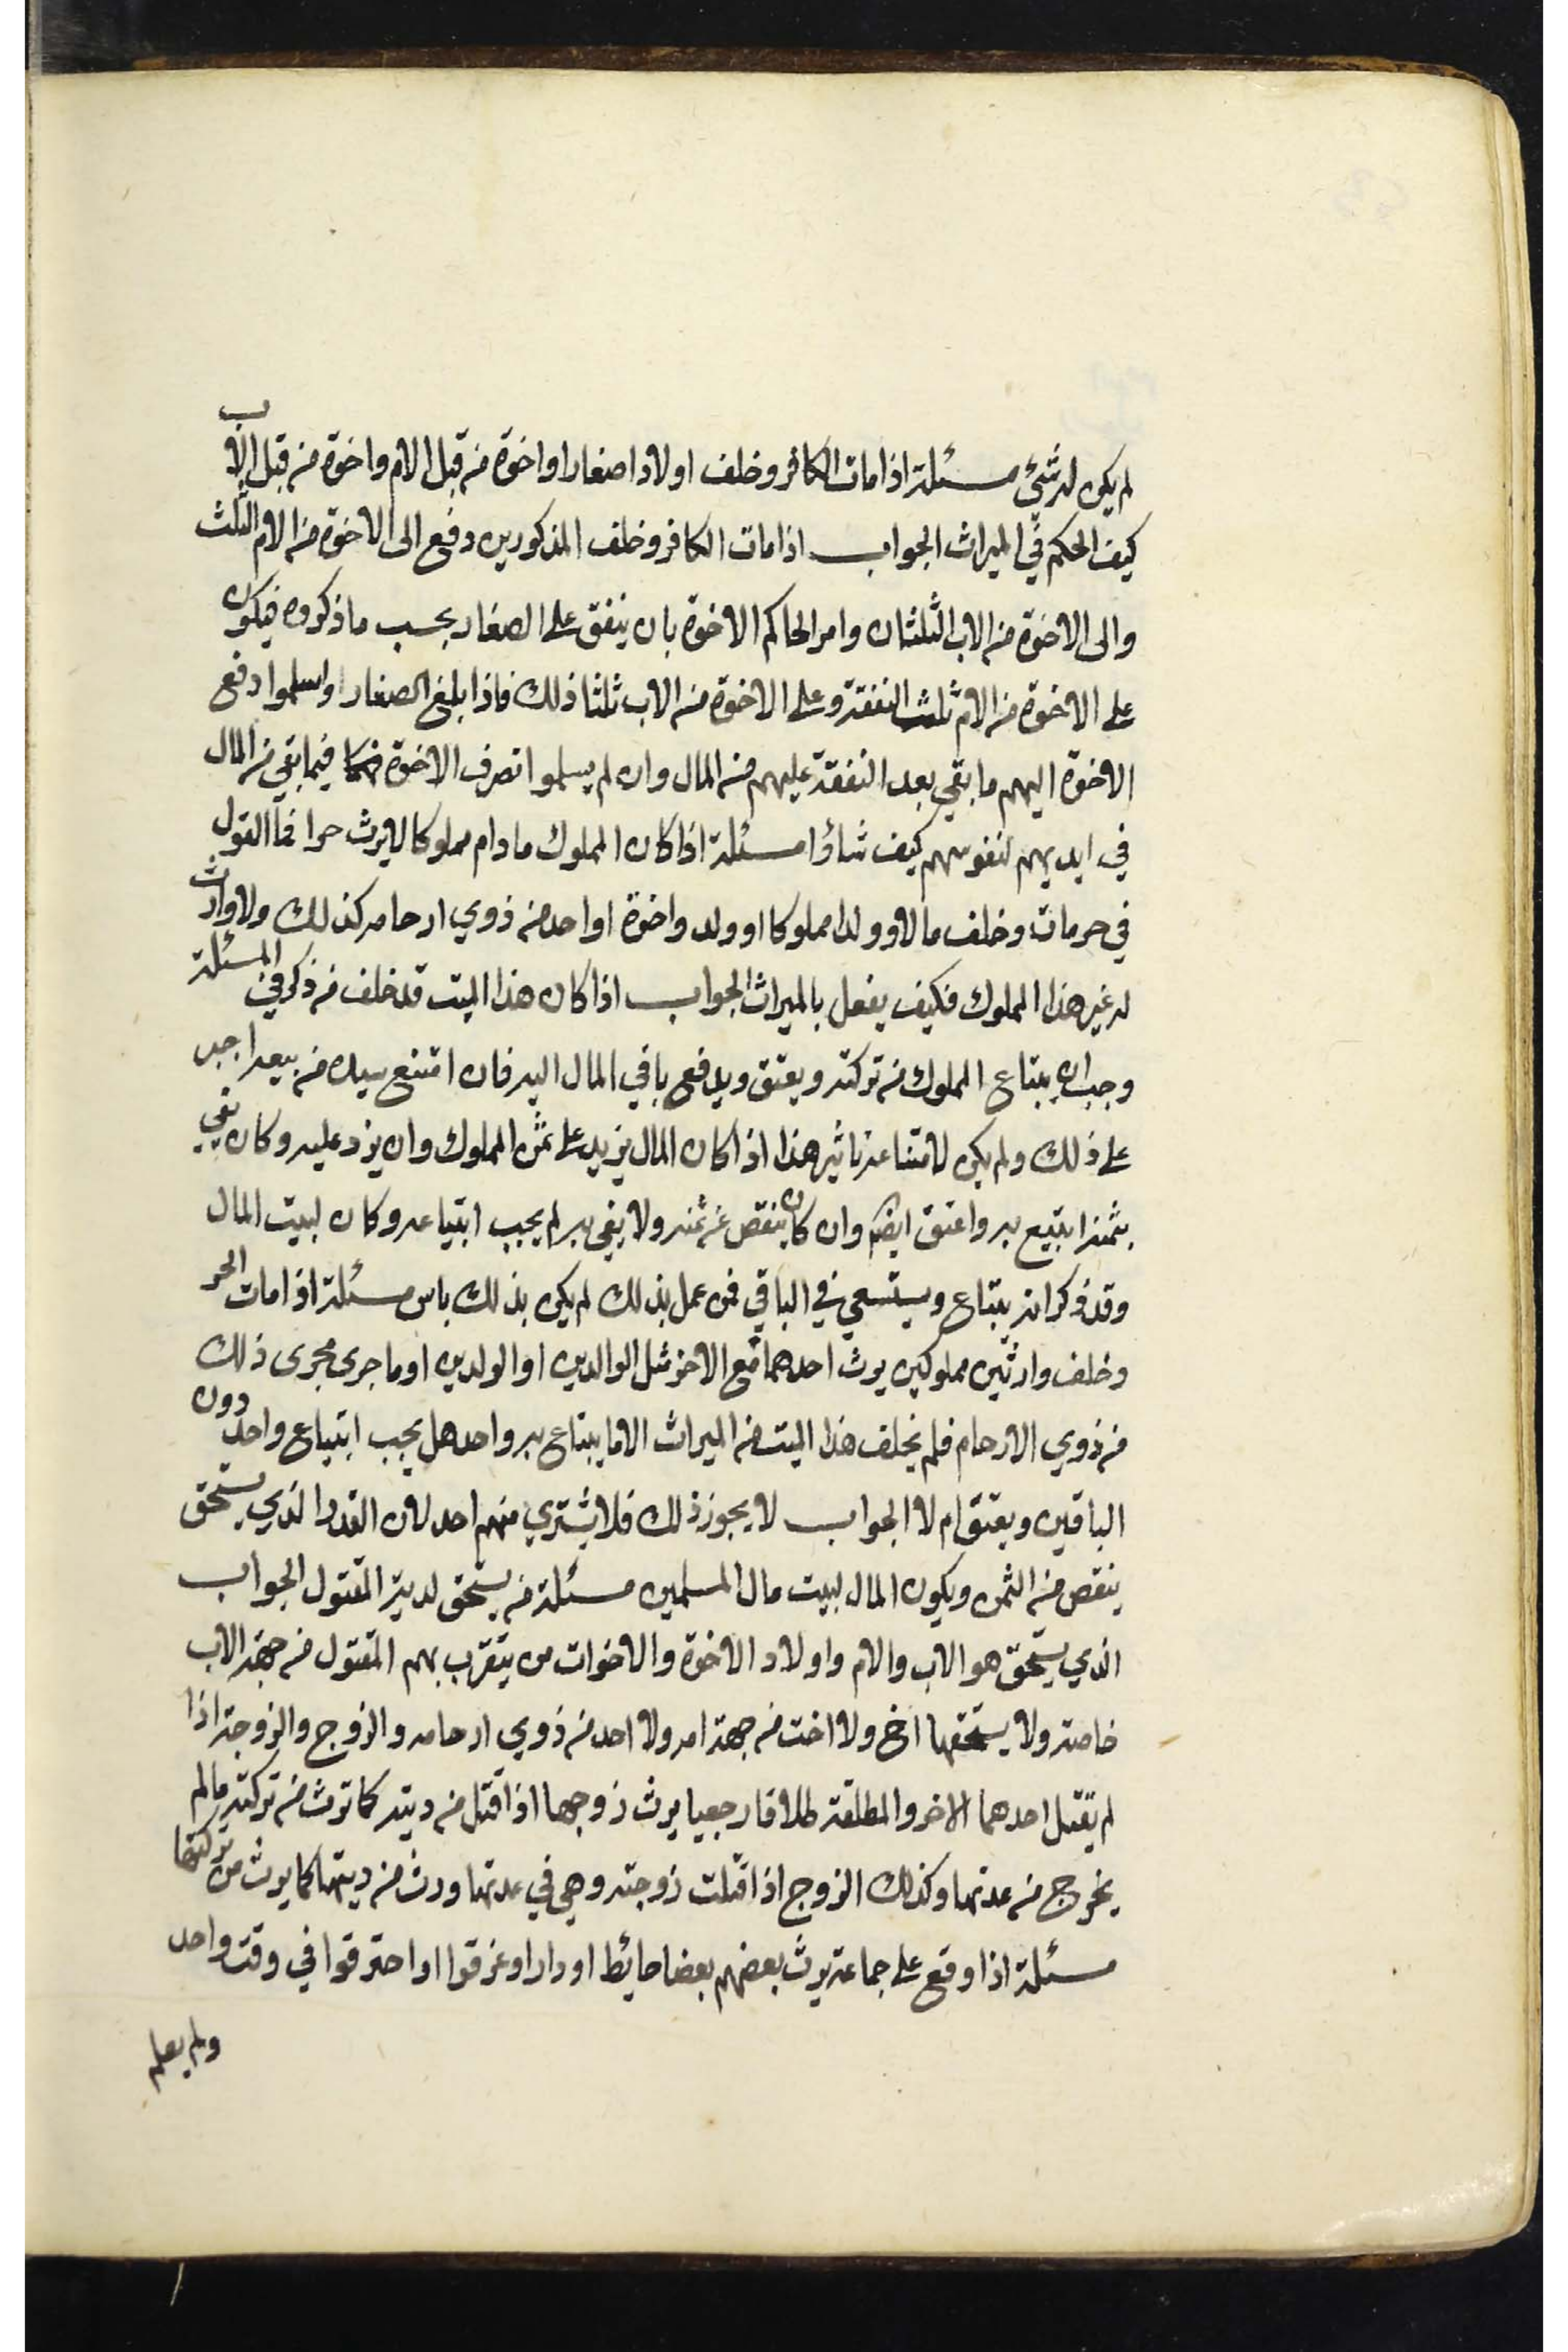 لم يكن له شئ مسئلة اذا مات الكافر وخلف اولادا صغارا واخوة من قبل الام واخوة من قبل الاب
كيف الحكم في الميراث الجواب اذا مات الكافر وخلف المذكورين دفع الى الاخوة من الام الثلث
والى الاخوة من الاب الثلثان وامر الحاكم الاخوة بان ينفق على الصغار بحسب ما ذكروه فيكون
على الاخوة من الام ثلث النفقة وعلى الاخوة من الاب ثلثا ذلك فاذا بلغ الصغار واسلموا دفع
الاخوة اليهم ما بقي بعد النفقة عليهم من المال وان لم يسلموا تصرف الاخوة فيما بقي من المال
في ايديهم لنفوسهم كيف شاؤا مسئلة اذا كان المملوك ما دام مملوكا لا يرث حرا فما القول
في حر مات وخلف مالا وولدا مملوكا او ولد واخوة او احد من ذوي ارحامه كذلك ولا وارث
له غير هذا المملوك فكيف يفعل بالميراث الجواب اذا كان هذا الميت قد خلف من ذكر في المسئلة
وجب ان يبتاع المملوك من تركته ويعتق ويدفع باقي المال اليه فان امتنع سيده من بيعه اجبر
على ذلك ولم يكن لامتناعه تاثير هذا اذا كان المال يزيد على ثمن المملوك وان يزد عليه وكان يفي
بثمنه ابتيع به واعتق ايضا وان كان ينقص عن ثمنه ولا يفي به لم يجب ابتياعه وكان لبيت المال
وقد ذكر انه يبتاع ويستسعي في الباقي فمن عمل بذلك لم يكن بذلك باس مسئلة اذا مات الحر
وخلف وارثين مملوكين يرث احدهما مع الاخر مثل الوالدين او الولدين او ما جرى مجرى ذلك
من ذوي الارحام فلم يخلف هذا الميت من الميراث الا ما يبتاع به واحد هل يجب ابتياع واحد دون
الباقين ويعتق ام لا الجواب لا يجوز ذلك فلا يشتري منهم احد لان القدر الذي يستحق
ينقص من الثمن ويكون المال لبيت مال المسلمين مسئلة من يستحق لدية المقتول الجواب
الذي يستحق هو الاب والام واولاد الاخوة والاخوات من يتقرب بهم المقتول من جهة الاب
خاصة ولا يستحقها اخ ولا اخت من جهة امه ولا احد من ذوي ارحامه والزوج والزوجة اذا
لم يقتل احدهما الاخر والمطلقة طلاقا رجعيا يرث زوجها اذا قتل من ديته كما ترث من تركته ما لم
يخرج من عدتها وكذلك الزوج اذا قتلت زوجته وهي في عدتها ورث من ديتها كما يرث من تركتها
مسئلة اذا وقع على جماعة يرث بعضهم بعضا حائط او دار او غرقوا او احترقوا في وقت واحد
ولم يعلم